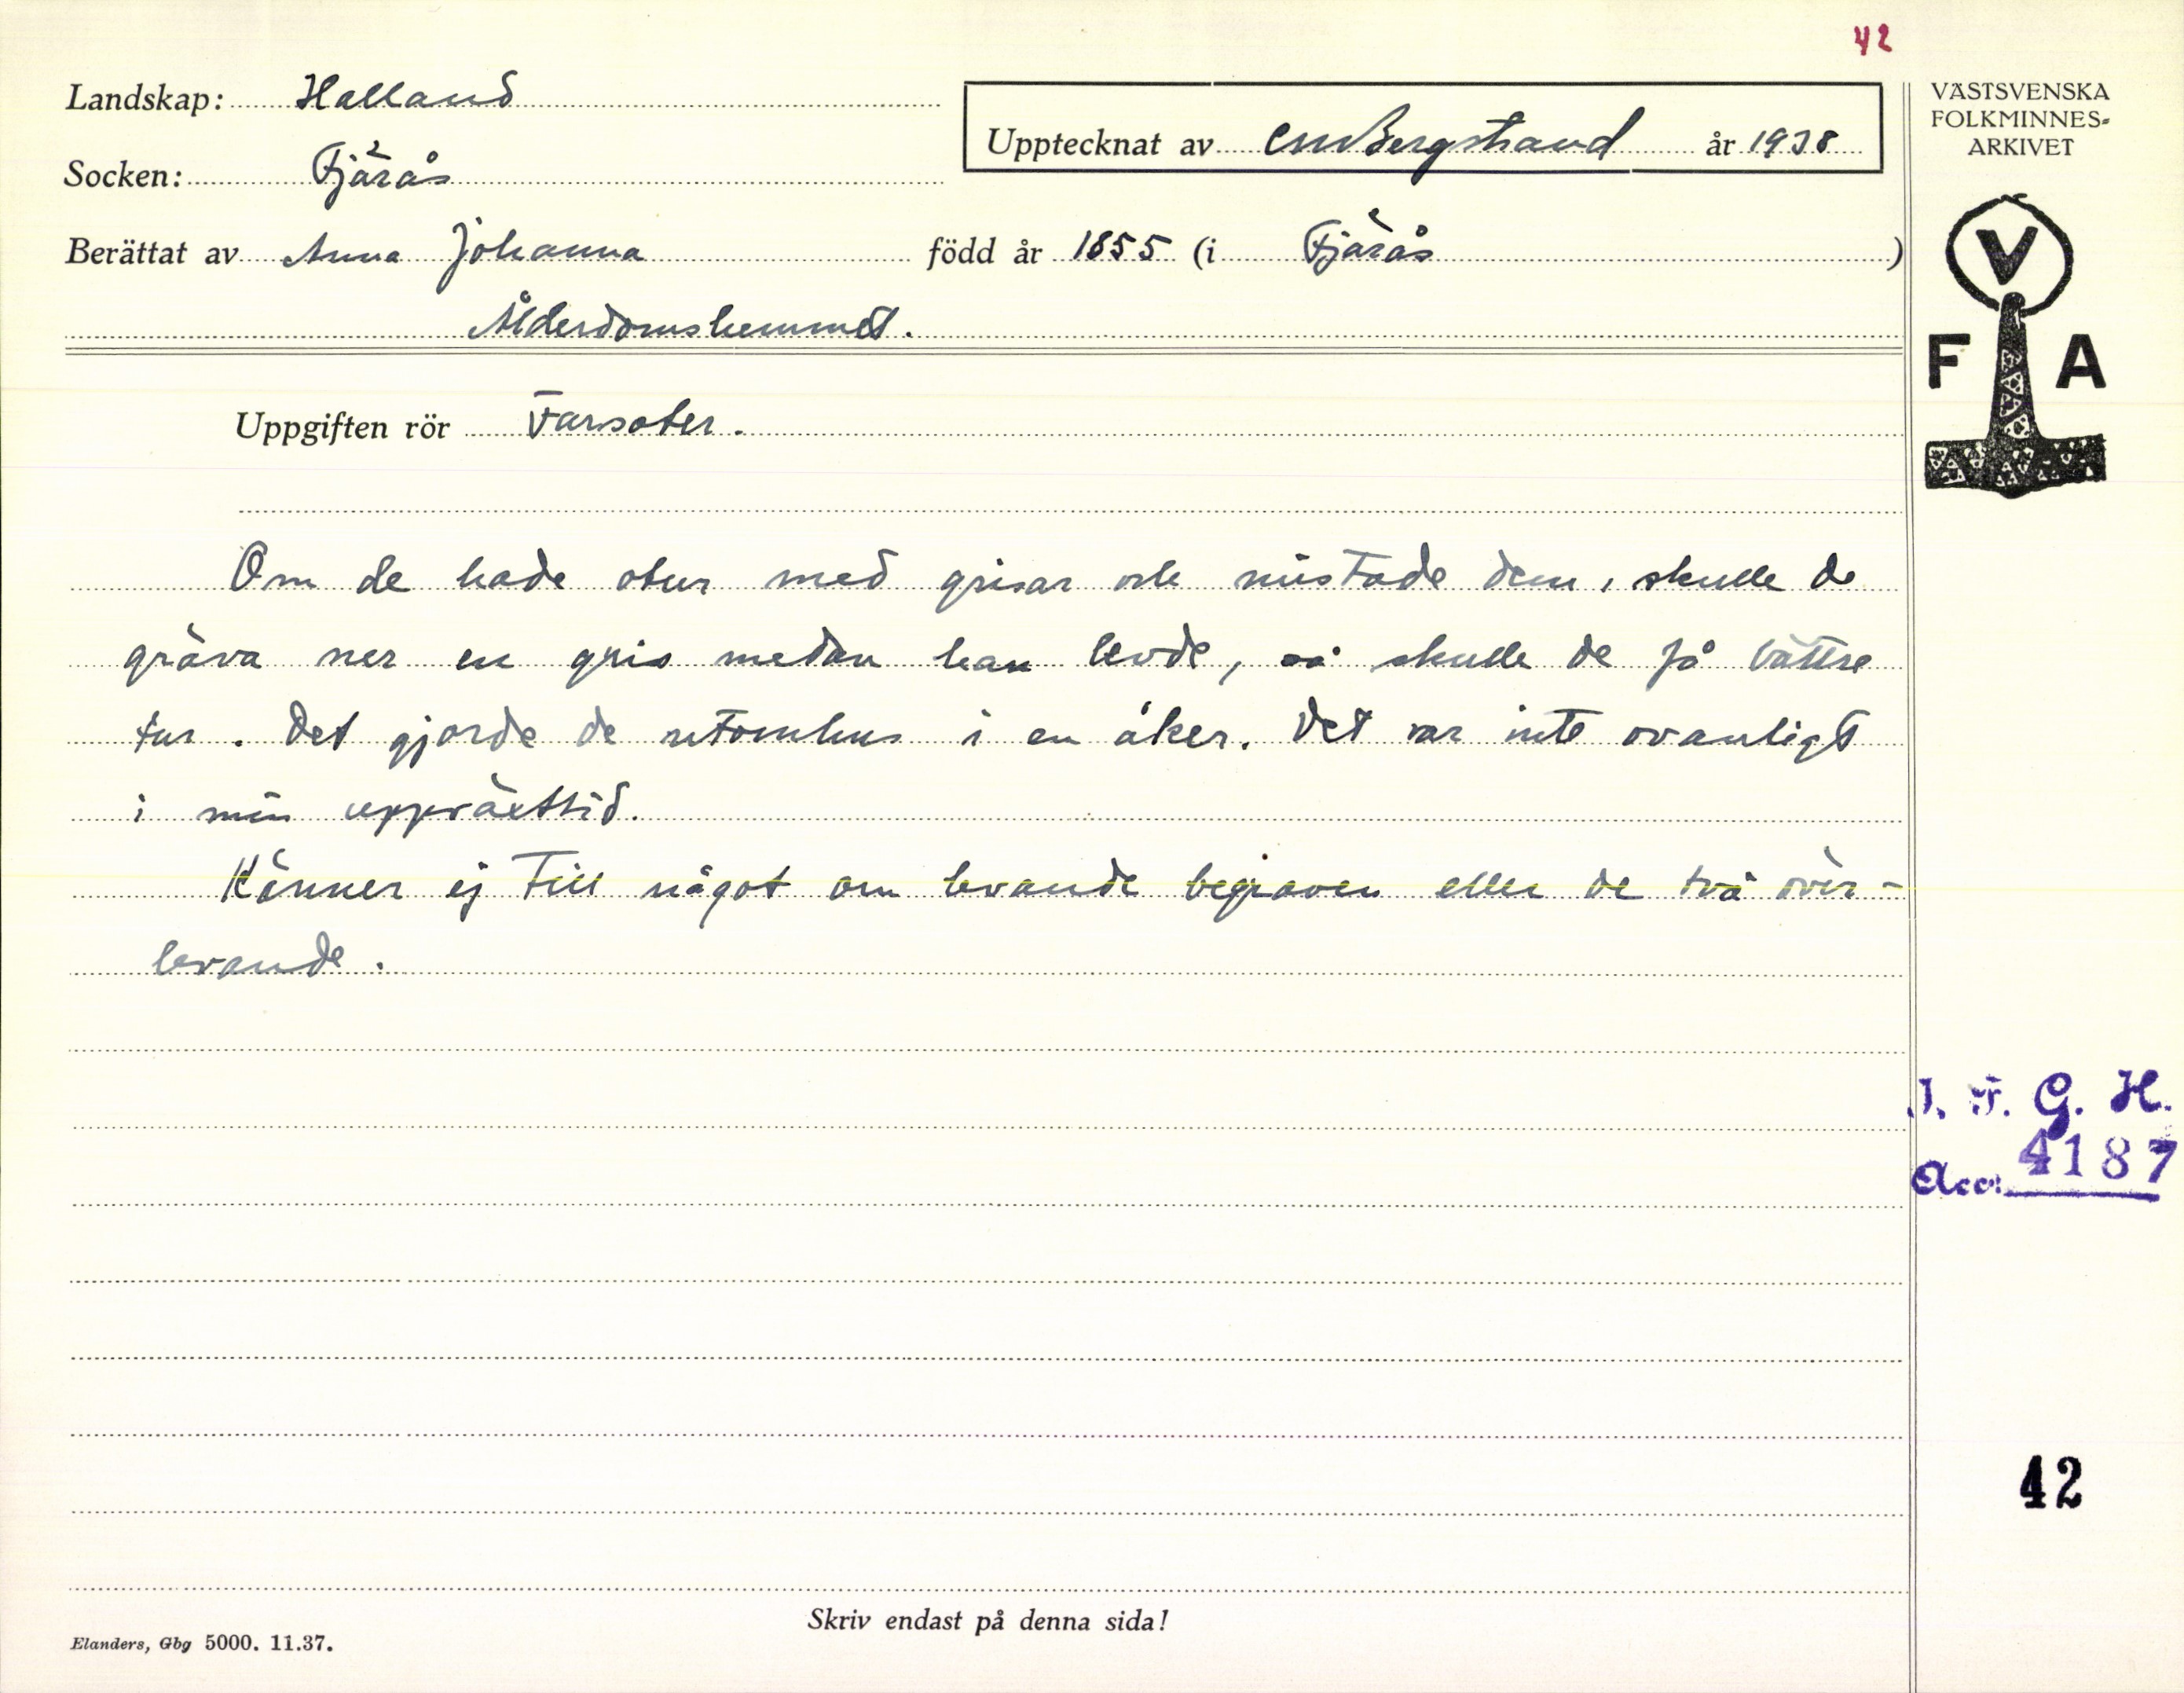 42
Landskap: Halland
Upptecknat av CMBergstrand år 1938
Socken: Fjärås
Berättat av Anna Johanna född år 1855 (i Fjärås)
Ålderdomshemmet.
VÄSTSVENSKA
FOLKMINNES-
ARKIVET
V
F A
Uppgiften rör Farsoter.
Om de hade otur med grisar och mistade dem, skulle de
gräva ner en gris medan han levde, så skulle de få bättre
tur. Det gjorde de utomhus i en åker. Det var inte ovanligt
i min uppväxttid.
Känner ej till något om levande begraven eller de två över-
levande.
I. F. G. H.
Acc: 4187
42
Skriv endast på denna sida!
Elanders, Gbg 5000. 11.37.